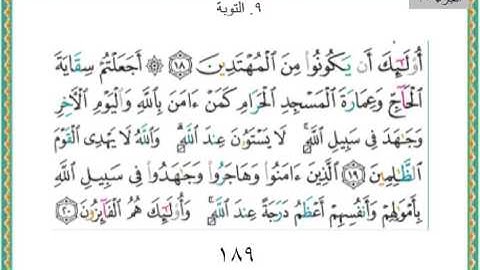 ٩. التوبة
أُوْلَٰٓئِكَ أَن يَكُونُواْ مِنَ ٱلْمُهْتَدِينَ ١٨ ۞ أَجَعَلْتُمْ سِقَايَةَ
ٱلْحَآجِّ وَعِمَارَةَ ٱلْمَسْجِدِ ٱلْحَرَامِ كَمَنْ ءَامَنَ بِٱللَّهِ وَٱلْيَوْمِ ٱلْأَخِرِ
وَجَٰهَدَ فِى سَبِيلِ ٱللَّهِ لَا يَسْتَوُۥنَ عِندَ ٱللَّهِ وَٱللَّهُ لَا يَهْدِى ٱلْقَوْمَ
ٱلظَّٰلِمِينَ ١٩ ٱلَّذِينَ ءَامَنُواْ وَهَاجَرُواْ وَجَٰهَدُواْ فِى سَبِيلِ ٱللَّهِ
بِأَمْوَٰلِهِمْ وَأَنفُسِهِمْ أَعْظَمُ دَرَجَةً عِندَ ٱللَّهِ وَأُوْلَٰٓئِكَ هُمُ ٱلْفَآئِزُونَ ٢٠
١٨٩